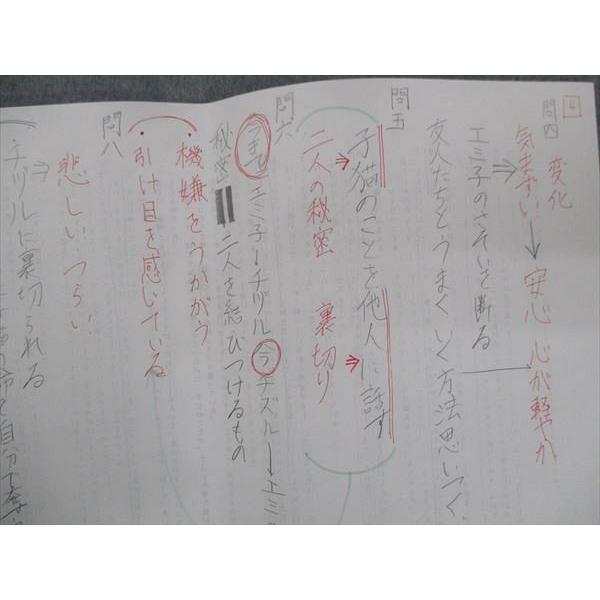 4
問四
変化
気まずい → 安心 心が軽やか
⇒ エミ子のさそいを断る →
友人たちとうまくいく方法思いつく
問五
子猫のことを他人に話す
⇒ 二人の秘密 ⇒ 裏切り
問六
今まで エミ子ーチヅル 今 チズルーエミ
秘密 = 二人を結びつけるもの
・機嫌をうかがう
・引け目を感じている
問八
悲しい、つらい
⇒ チヅルに裏切られる